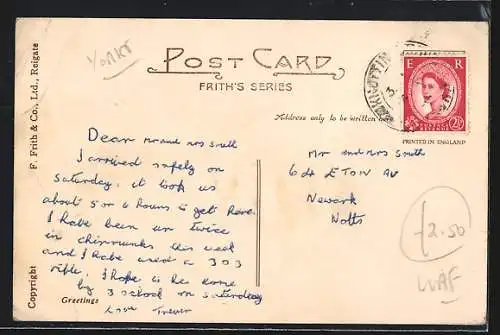 YORKS
POST CARD
FRITH'S SERIES
Address only to be written he
F. Frith & Co., Ltd., Reigate
Copyright
E R
POSTAGE REVENUE
2½D
PRINTED IN ENGLAND
Dear Mr and Mrs Smith
I arrived safely on
Saturday, it took us
about 5 or 6 hours to get here.
I have been up twice
in chipmunks this week
and I have used a 303
rifle. I hope to be home
by 3 school on saturday
Love Trevor
Greetings
Mr and Mrs Smith
64 ETON AV
Newark
Notts
£2.50
WAF